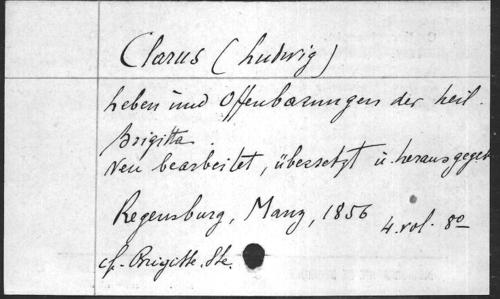 Clarus (Ludwig)
Leben und Offenbarungen der heil.
Brigitta.
Neu bearbeitet, übersetzt u. herausgegeb
Regensburg, Manz, 1856
4. vol. 8º
cf. Brigitte. Ste.